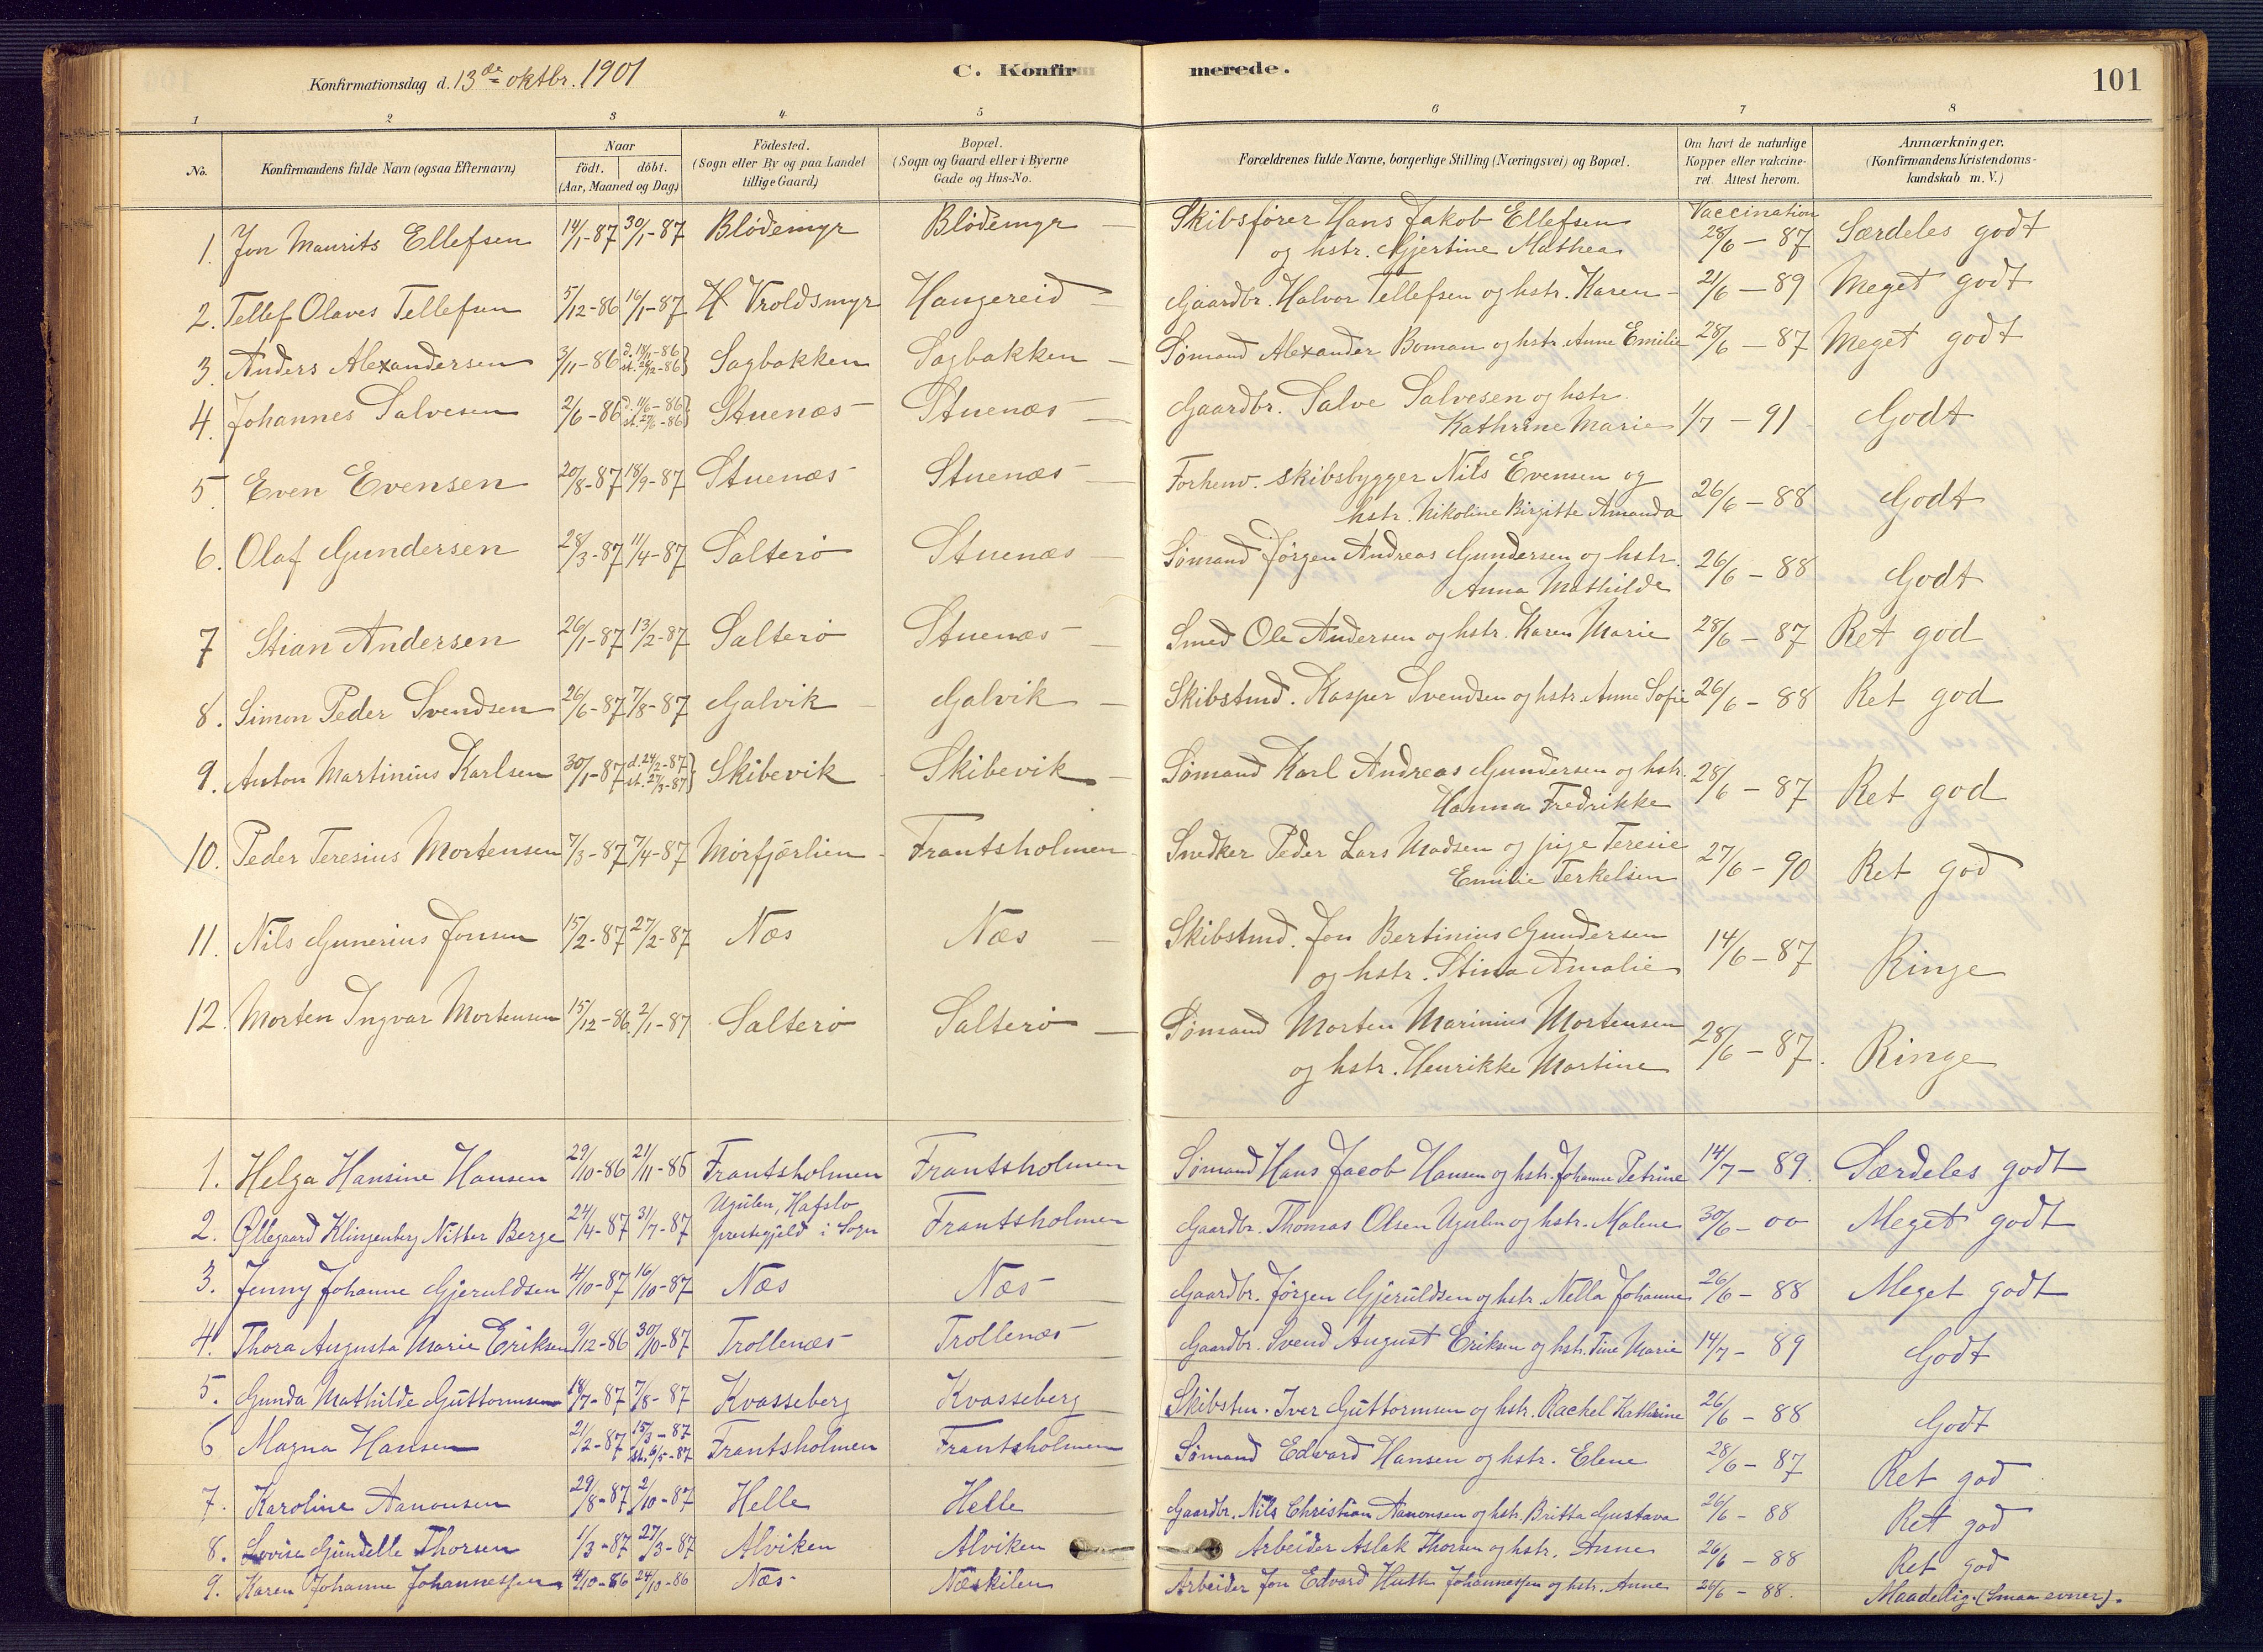 Konfirmationsdag d. 13de oktbr. 1901 C. Konfirmerede. 101
1 2 3 4 5 6 7 8
No. Konfirmandens fulde Navn (ogsaa Efternavn) Naar födt. döbt. (Aar, Maaned og Dag.) Födested. (Sogn eller By og paa Landet tillige Gaard.) Bopæl. (Sogn og Gaard eller i Byerne Gade og Hus-No. Forældrenes fulde Navne, borgerlige Stilling (Næringsvei) og Bopæl. Om havt de naturlige Kopper eller vakcineret. Attest herom. Anmærkninger. (Konfirmandens Kristendomskundskab m. V.)
1. Jon Maurits Ellefsen 14/1-87 30/1-87 Blödemyr Blödemyr Skibsfører Hans Jakob Ellefsen og hstr. Gjertine Mathea Vaccination 28/6 - 87 Særdeles godt
2. Tellef Olaves Tellefsen 5/12-86 16/1-87 Vroldsmyr Haugereid Gaardbr. Halvor Tellefsen og hstr. Karen 21/6 - 89 Meget godt
3. Anders Alexandersen 3/11-86 d. 14/11-86 st. 26/12-86 Sagbakken Sagbakken Sømand Alexander Boman og hstr. Anne Emilie 28/6 - 87 Meget godt
4. Johannes Salvesen 2/6-86 d. 11/6-86 st. 27/6-86 Stuenæs Stuenæs Gaardbr. Salve Salvesen og hstr. Kathrine Marie 1/7 - 91 Godt
5. Even Evensen 20/8-87 18/9-87 Stuenæs Stuenæs Forhenv. skibsbygger Nils Evensen og hstr. Nikoline Birgitte Amanda 26/6 - 88 Godt
6. Olaf Gundersen 28/3-87 11/4-87 Salterö Stuenæs Sømand Jørgen Andreas Gundersen og hstr. Anna Mathilde 26/6 - 88 Godt
7 Stian Andersen 26/1-87 13/2-87 Salterö Stuenæs Smed Ole Andersen og hstr. Karen Marie 28/6 - 87 Ret god
8. Simon Peder Svendsen 26/6-87 7/8-87 Galvik Galvik Skibstmd. Kasper Svendsen og hstr. Anne Sofie 26/6 - 88 Ret god
9. Anton Martinius Karlsen 30/1-87 d. 24/2-87 st. 27/3-87 Skibevik Skibevik Sømand Karl Andreas Gundersen og hstr. Hanna Fredrikke 28/6 - 87 Ret god
10. Peder Teresius Mortensen 7/3-87 7/4-87 Mörfjærlien Frantsholmen Snedker Peder Lars Madsen og pige Teresie Emilie Terkelsen 27/6 - 90 Ret god
11. Nils Gunerius Jonsen 15/2-87 27/2-87 Næs Næs Skibstmd. Jon Bertinius Gundersen og hstr. Stina Amalie 14/6 - 87 Ringe
12. Morten Ingvar Mortensen 15/12-86 2/1-87 Salterö Salterö Sømand Morten Marinius Mortensen og hstr. Henrikke Martine 28/6 - 87. Ringe
1. Helga Hansine Hansen 29/10-86 21/11-86 Frantsholmen Frantsholmen Sømand Hans Jacob Hansen og hstr. Johanne Petrine 14/7 - 89. Særdeles godt
2. Øllegaard Klingenberg Nitter Berge 24/4-87 31/7-87 Ugulen, Hafslo prestegjeld i Sogn Frantsholmen Gaardbr. Thomas Olsen Ugulen og hstr. Malene 30/6 - 00 Meget godt
3. Jenny Johanne Gjeruldsen 4/10-87 16/10-87 Næs Næs Gaardbr. Jörgen Gjeruldsen og hstr. Nella Johanne 26/6 - 88 Meget godt
4. Thora Augusta Marie Eriksen 9/12-86 30/10-87 Trollenæs Trollenæs Gaardbr. Svend August Eriksen og hstr. Tine Marie 14/7 - 89 Godt
5. Gunda Mathilde Guttormsen 18/7-87 7/8-87 Kvasseberg Kvasseberg Skibstm. Iver Guttormsen og hstr. Rachel Kathrine 26/6 - 88 Godt
6 Magna Hansen 21/2-87 15/3-87 st. 6/5-87 Frantsholmen Frantsholmen Sømand Edvard Hansen og hstr. Elene 28/6 - 87 Ret god
7. Karoline Aanonsen 29/8-87 2/10-87 Helle Helle Gaardbr. Nils Christian Aanonsen og hstr. Britta Gustava 26/6 - 88 Ret god
8. Lovise Gundelle Thorsen 1/3-87 27/3-87 Alviken Alviken Arbeider Aslak Thorsen og hstr. Anne 26/6 - 88 Ret god
9. Karen Johanne Johannessen 4/10-86 24/10-86 Næs Næskilen Arbeider Jon Edvard Huth Johannessen og hstr. Anne 26/6 - 88. Maadelig. (Smaa evner).